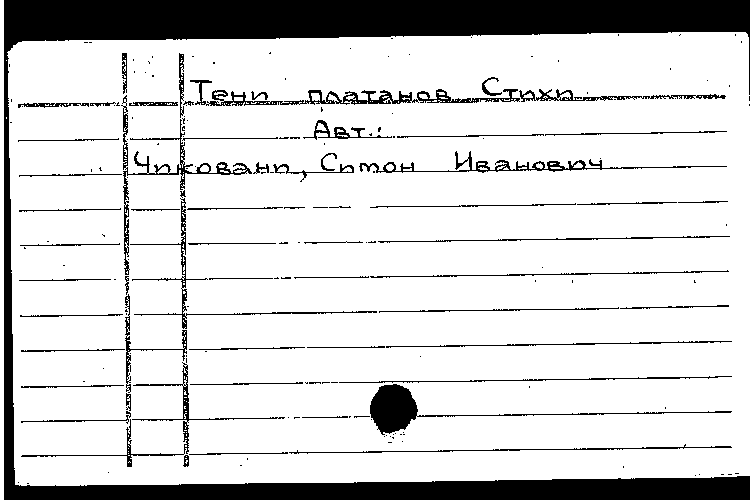 Тени платанов Стихи
Авт.:
Чиковани, Симон Иванович